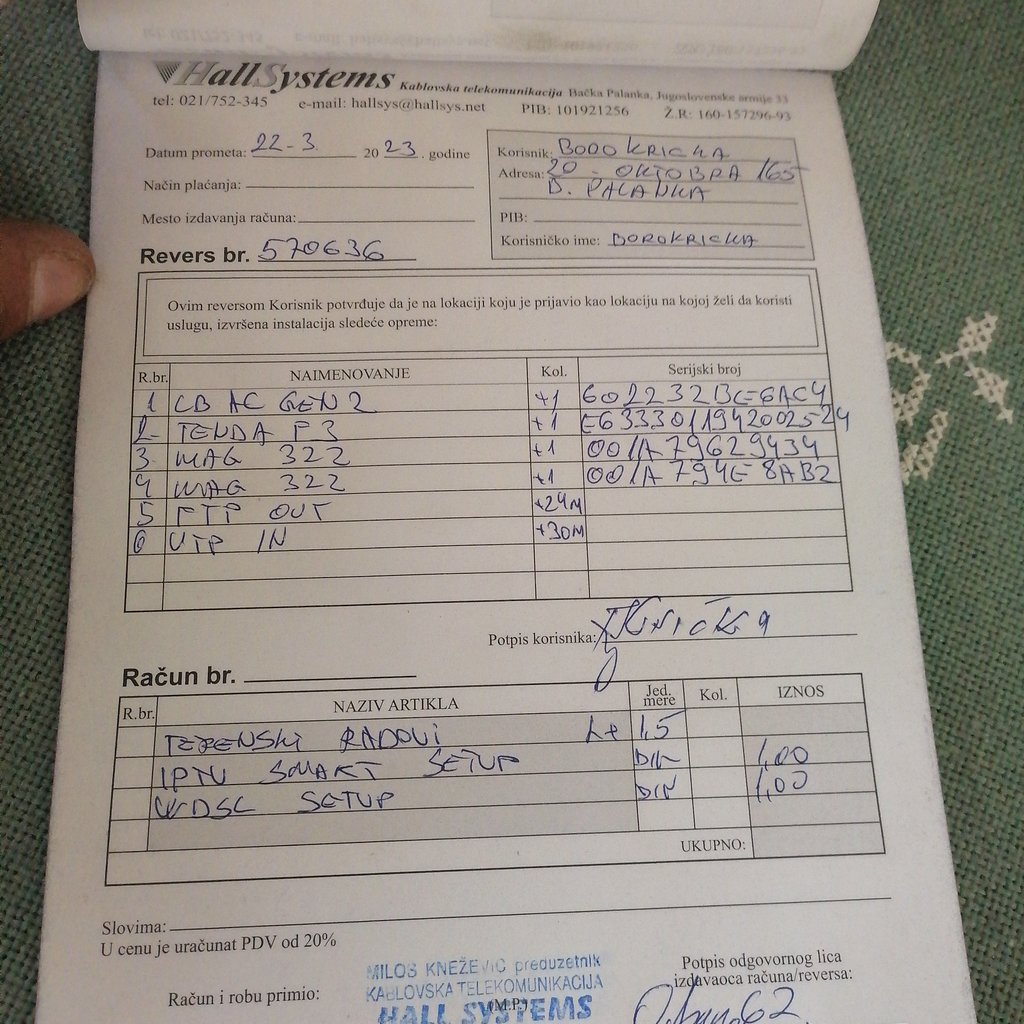 HallSystems Kablovska telekomunikacija Bačka Palanka, Jugoslovenske armije 33
tel: 021/752-345 e-mail: hallsys@hallsys.net PIB: 101921256 Ž.R: 160-157296-93
Datum prometa: 22-3 2023. godine
Korisnik: BORO KRICKA
Adresa: 20 - OKTOBRA 165
B. PALANKA
Način plaćanja:
Mesto izdavanja računa:
PIB:
Korisničko ime: BOROKRICKA
Revers br. 570636
Ovim reversom Korisnik potvrđuje da je na lokaciji koju je prijavio kao lokaciju na kojoj želi da koristi
uslugu, izvršena instalacija sledeće opreme:
R.br. NAIMENOVANJE Kol. Serijski broj
1 LB AC GEN2 +1 602232BE6AC4
2. TENDA F3 +1 E6333011942002524
3. MAG 322 +1 001A79629434
4 MAG 322 +1 001A794E8AB2
5 FTP OUT +24M
6 UTP IN +30M
Potpis korisnika: Krička
Račun br.
R.br. NAZIV ARTIKLA Jed. mere Kol. IZNOS
TERENSKI RADOVI 1,5
IPTV SMART SETUP DIN 1,00
WDSL SETUP DIN 1,00
UKUPNO:
Slovima:
U cenu je uračunat PDV od 20%
Račun i robu primio:
MILOŠ KNEŽEVIĆ preduzetnik
KABLOVSKA TELEKOMUNIKACIJA
HALL SYSTEMS
(M.P.)
Potpis odgovornog lica
izdavaoca računa/reversa: